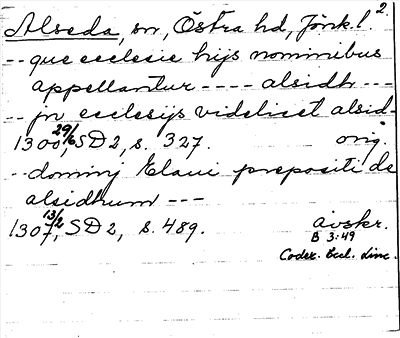 Alseda, sn, Östra hd, Jönk. l. 2.
-- que ecclesie hijs nominibus
appellantur ---- alsidh ---
-- jn ecclesijs videlicet alsid-
1300 29/6, SD 2, s. 327. orig.
-- dominj Elaui prepositi de
alsidhum ---
1307 13/2, SD 2, s. 489. avskr.
B 3:49
Codex. Eccl. Linc.